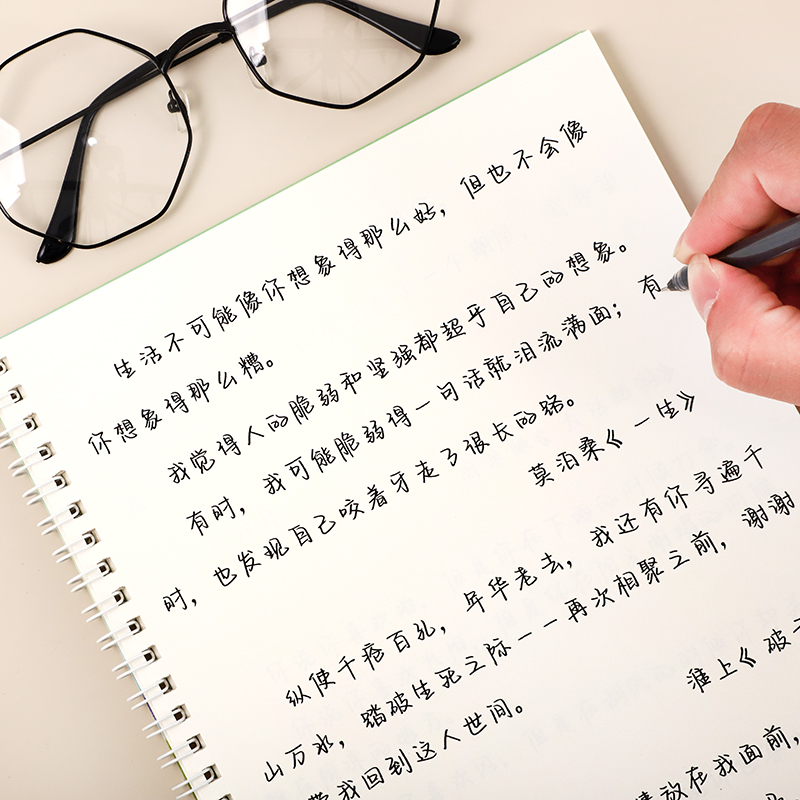 生活不可能像你想象得那么好，但也不会像
你想象得那么糟。
我觉得人的脆弱和坚强都超乎自己的想象。
有时，我可能脆弱得一句话就泪流满面；有
时，也发现自己咬着牙走了很长的路。
莫泊桑《一生》
纵使千疮百孔，年华老去，我还有你寻遍千
山万水，踏破生死之际一一再次相聚之前，谢谢
带我回到这人世间。
淮上《破云
放在我面前，